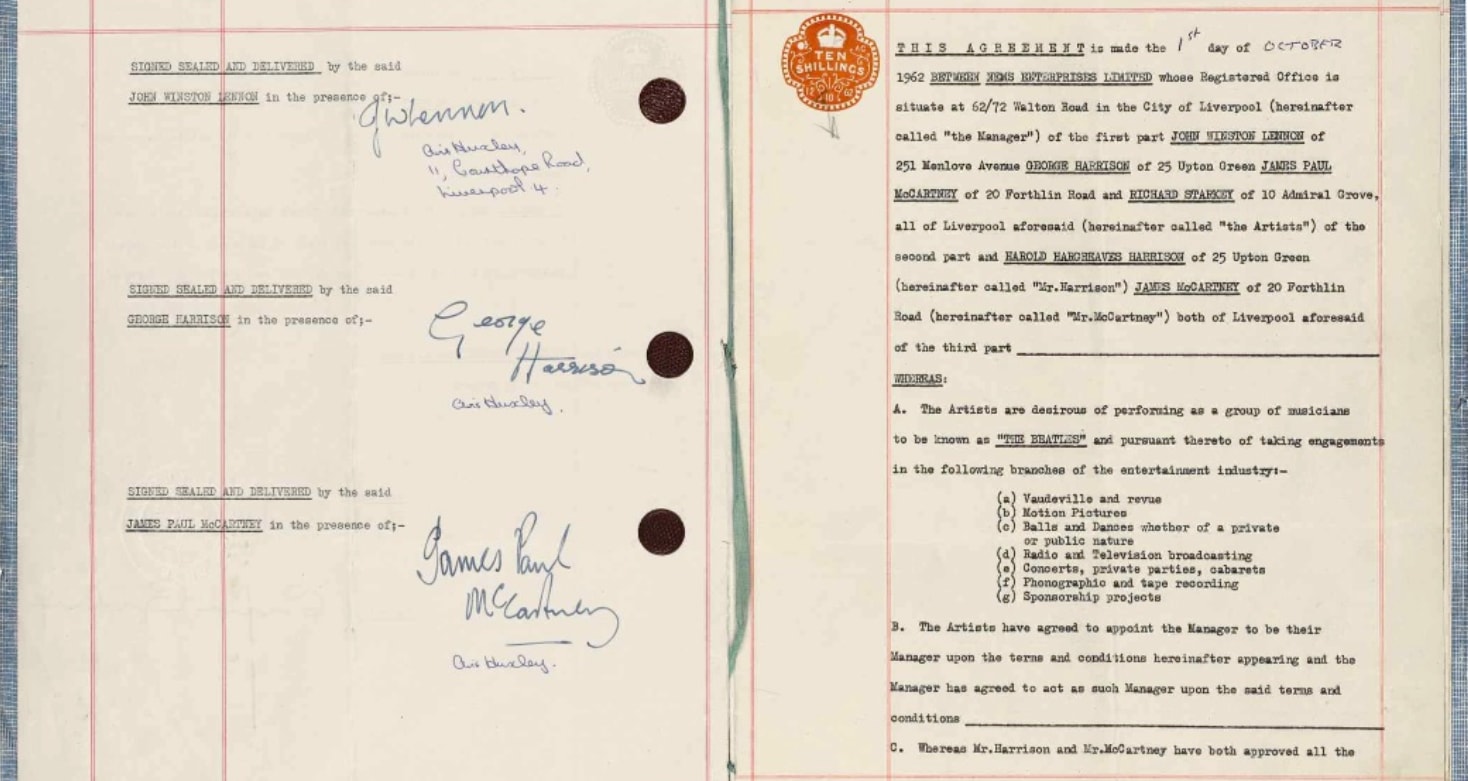 SIGNED SEALED AND DELIVERED by the said
JOHN WINSTON LENNON in the presence of;-
JWLennon.
11,
Road,
Liverpool 4.
SIGNED SEALED AND DELIVERED by the said
GEORGE HARRISON in the presence of;-
George
Harrison
Huxley.
SIGNED SEALED AND DELIVERED by the said
JAMES PAUL McCARTNEY in the presence of;-
James Paul
McCartney
Huxley.
TEN
SHILLINGS
THIS AGREEMENT is made the 1st day of OCTOBER
1962 BETWEEN NEMS ENTERPRISES LIMITED whose Registered Office is
situate at 62/72 Walton Road in the City of Liverpool (hereinafter
called "the Manager") of the first part JOHN WINSTON LENNON of
251 Menlove Avenue GEORGE HARRISON of 25 Upton Green JAMES PAUL
McCARTNEY of 20 Forthlin Road and RICHARD STARKEY of 10 Admiral Grove,
all of Liverpool aforesaid (hereinafter called "the Artists") of the
second part and HAROLD HARGREAVES HARRISON of 25 Upton Green
(hereinafter called "Mr.Harrison") JAMES McCARTNEY of 20 Forthlin
Road (hereinafter called "Mr.McCartney") both of Liverpool aforesaid
of the third part
WHEREAS:
A. The Artists are desirous of performing as a group of musicians
to be known as "THE BEATLES" and pursuant thereto of taking engagements
in the following branches of the entertainment industry:-
(a) Vaudeville and revue
(b) Motion Pictures
(c) Balls and Dances whether of a private
or public nature
(d) Radio and Television broadcasting
(e) Concerts, private parties, cabarets
(f) Phonographic and tape recording
(g) Sponsorship projects
B. The Artists have agreed to appoint the Manager to be their
Manager upon the terms and conditions hereinafter appearing and the
Manager has agreed to act as such Manager upon the said terms and
conditions
C. Whereas Mr.Harrison and Mr.McCartney have both approved all the